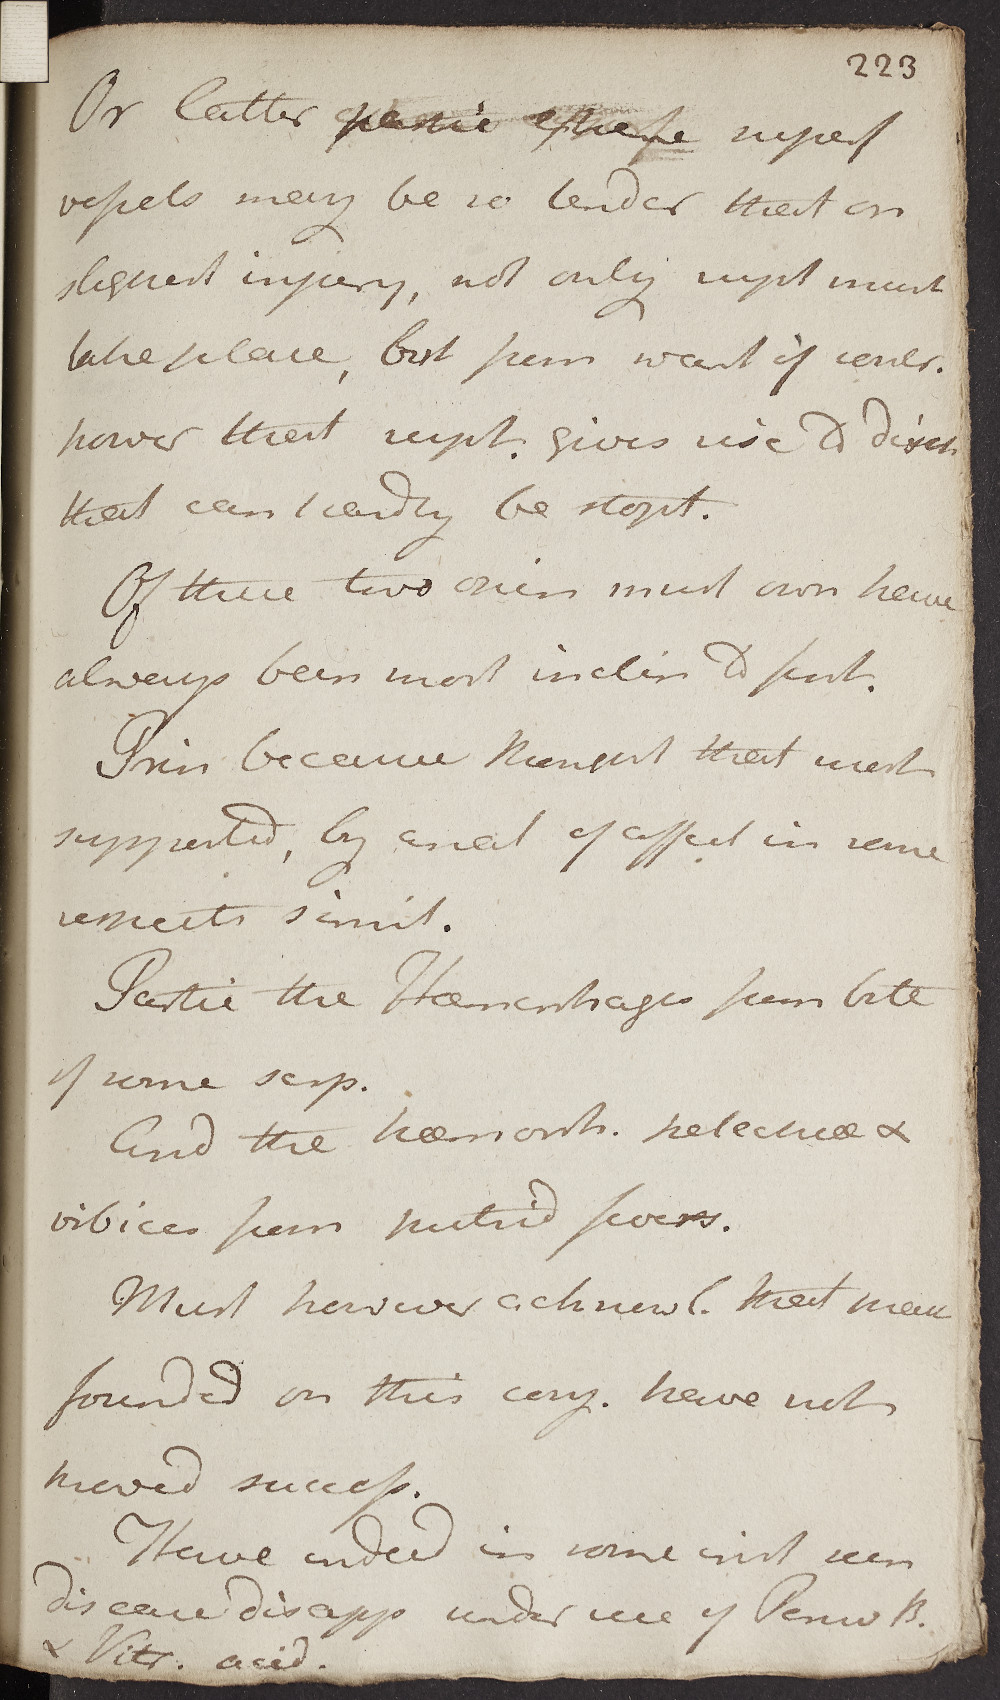 223
On latter supposi
vessels may be so tender that on
slightest injury, not only rupt must
take place, but from want of contr.
power that rupt. gives rise to disch
that can hardly be stopt.
Of these two opin must own have
always been most inclin to first.
Prin because thought that most
supported, by anal of affect in some
respects simil.
Partic the Hæmorrhages from bite
of some serp.
And the hæmorrh. petechiæ &
vibices from putrid fevers.
Must however acknowl. that meas
founded on this conj. have not
proved success.
Have indeed in some inst seen
disease disapp under use of Peruv B.
& Vitr. acid.